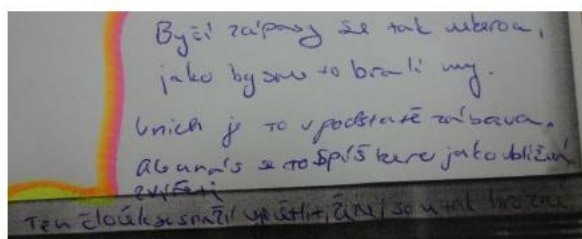 Byčí zápasy se tak neberou,
jako bysme to brali my.
U nich je to v podstatě zábava.
Ale u nás se to spíš bere jako ublížení
zvířeti
Ten člověk se snaží vysvětlit, že nejsou tak hrozné